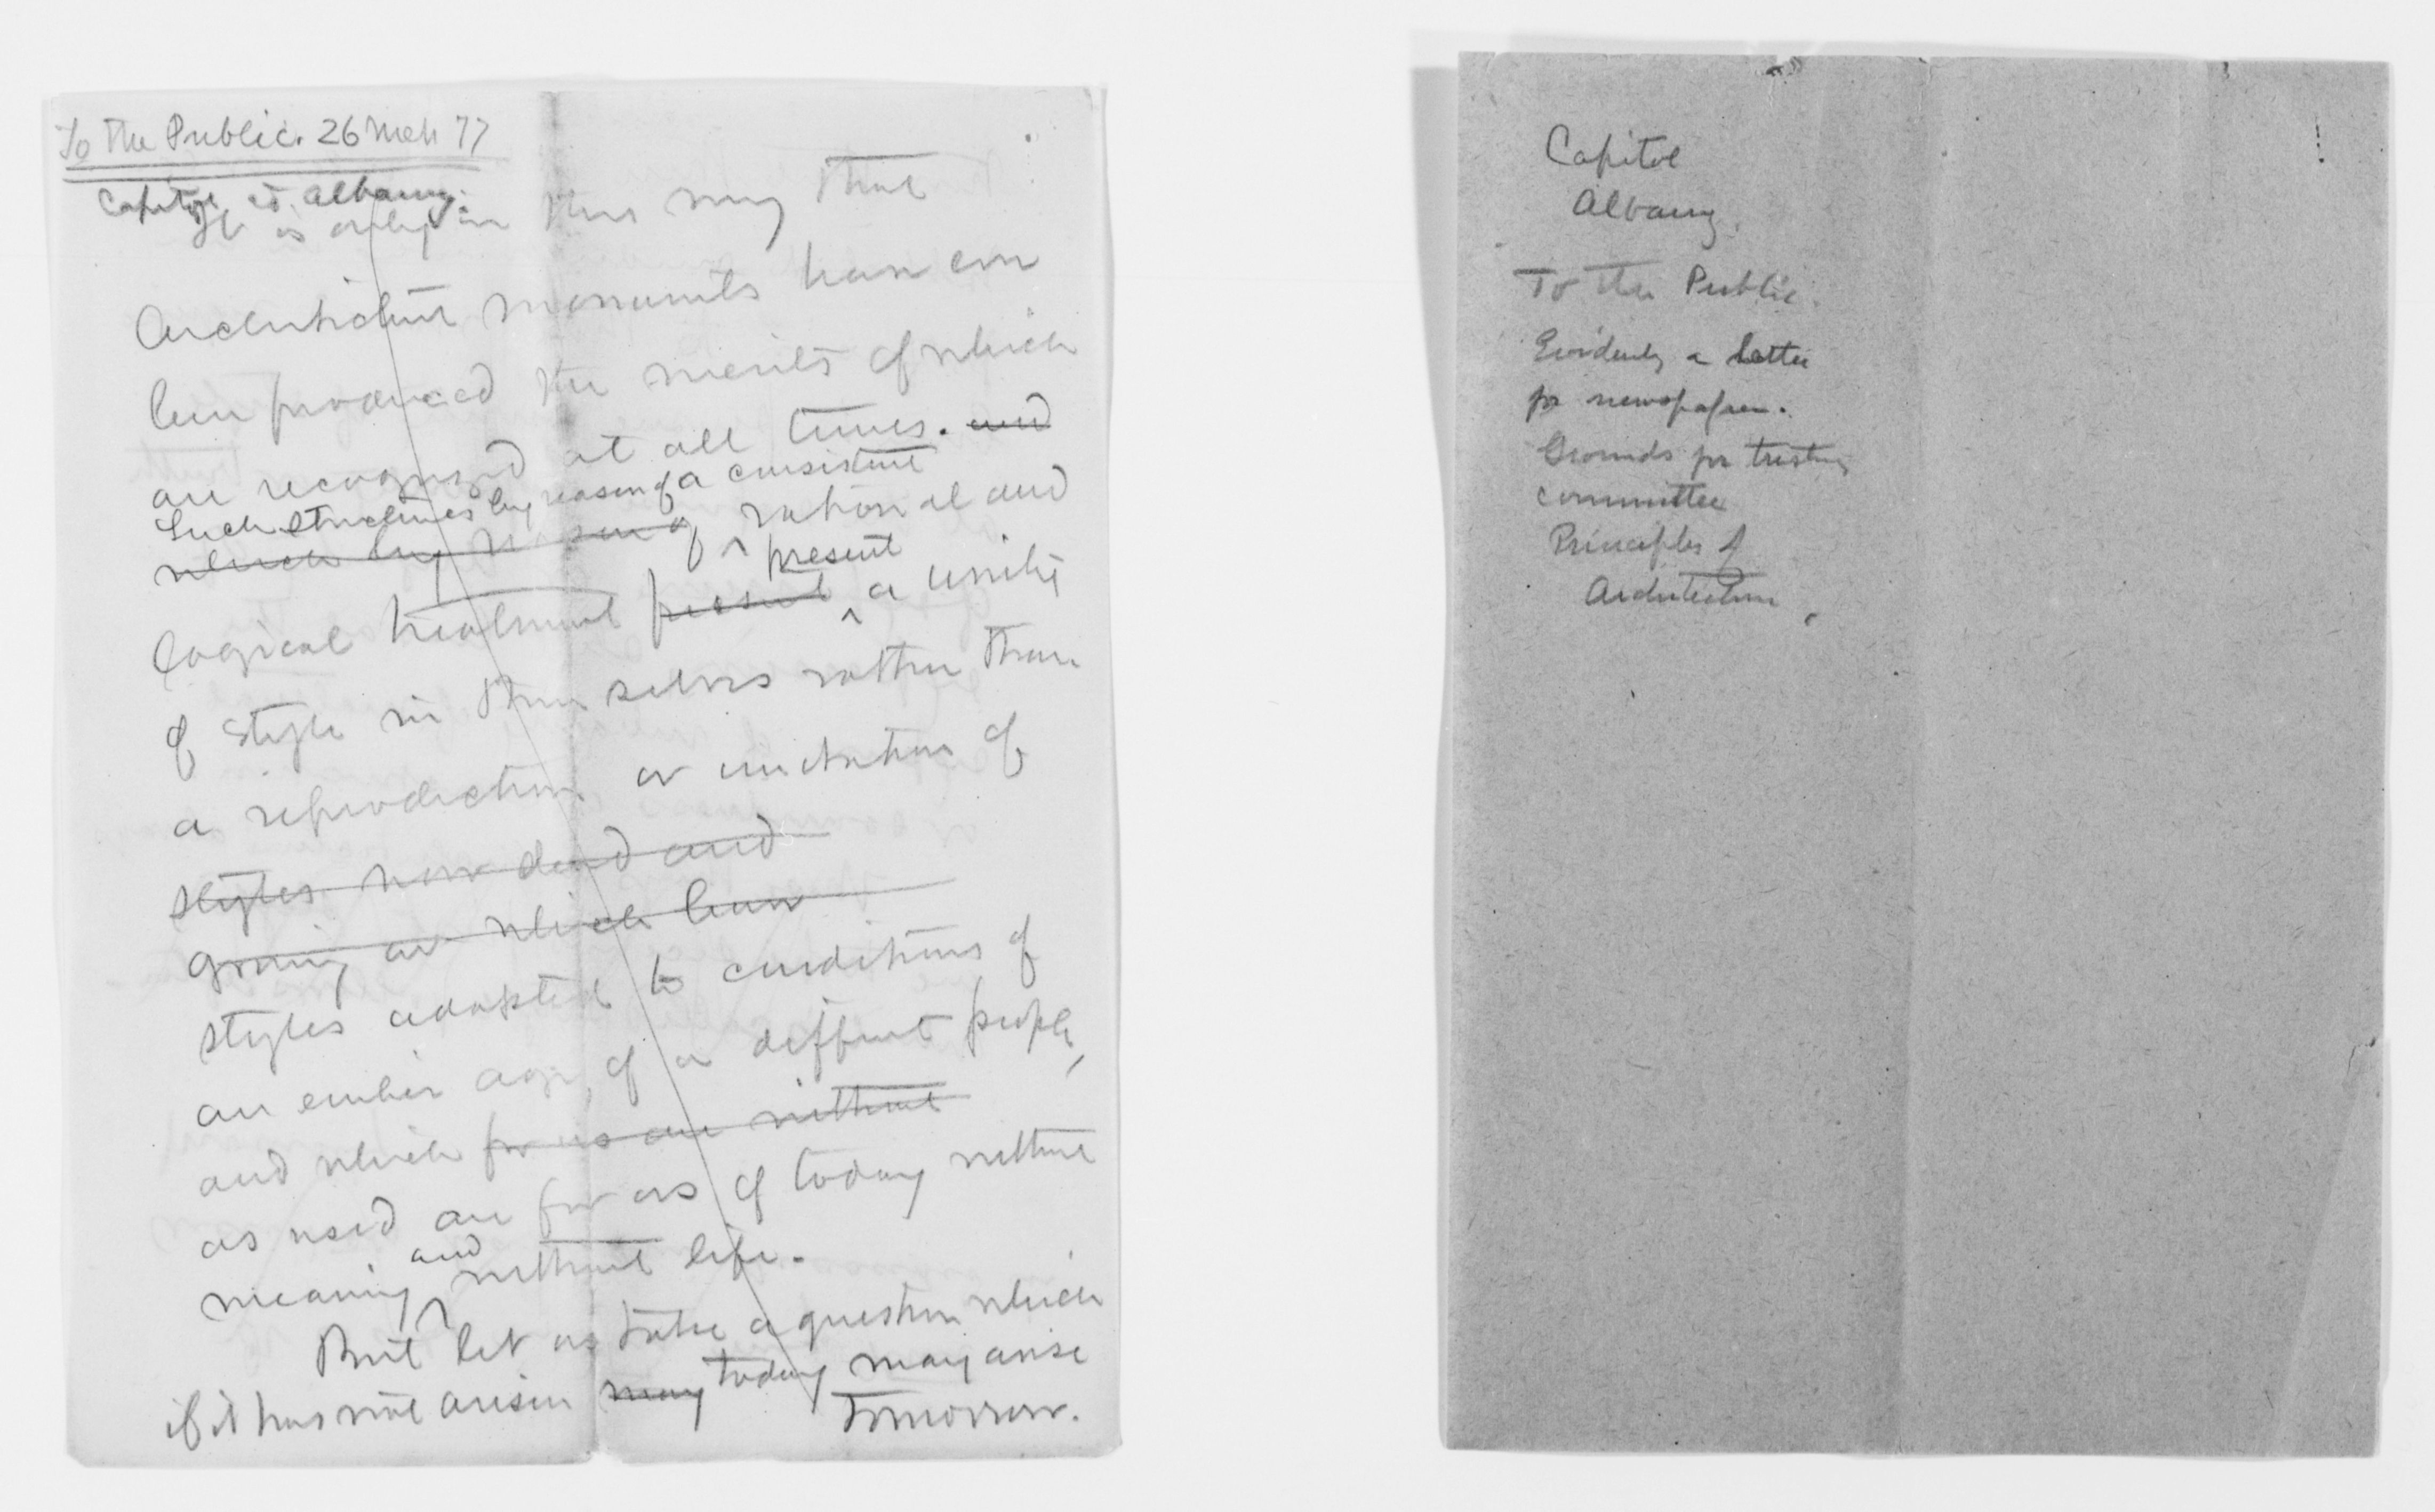 To the Public. 26 Mch 77
Capitol at Albany.
It is only in this way that
Architecture monuments have ever
been produced the merits of which
are recognized at all times. and
Such structures by reason of a consistent
which by reason of rational and
present
logical treatment present a unity
of style in themselves rather than
a reproduction or imitation of
styles now dead and
gone or which have
styles adapted to conditions of
an earlier age, of a different people,
and which for us are without
as used are for us of today without
and
meaning without life.
But let us take a question which
if it has not arisen may today may arise
tomorrow.
Capitol
Albany.
To the Public.
Evidently a letter
for newspaper.
Grounds for trusting
committee
Principles of
Architecture.